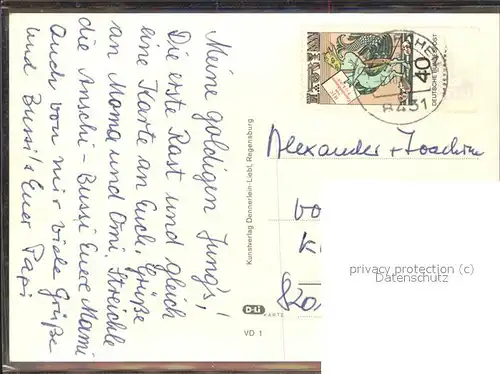 Meine goldigen Jung's!
Die erste Rast und gleich
eine Karte an Euch. Grüße
an Mama und Omi. Streichle
die Anschi - Bussi Eure Mami
Auch von mir viele Grüße
und Bussi's Euer Papi
Kunstverlag Dennerlein-Liebl, Regensburg
D-Li
KARTE
VD 1
40
DEUTSCHE BUNDESPOST
8431
Alexander + Joachim
820
privacy protection (c)
Datenschutz